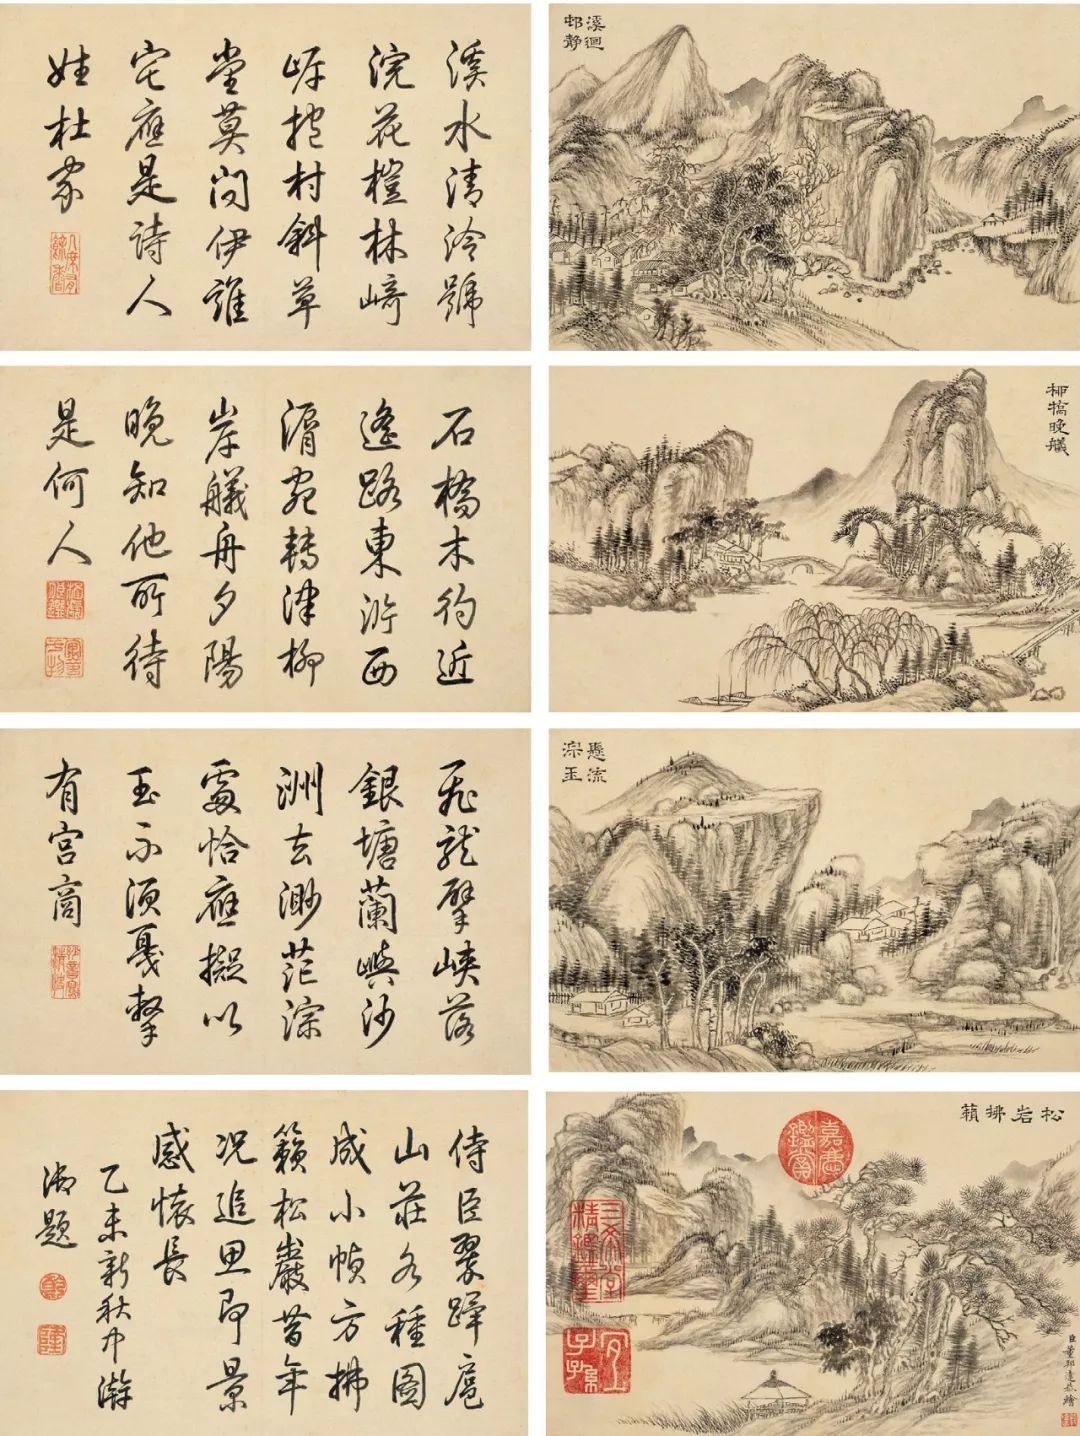 溪水清泠號
浣花榿林崎
岸抱村斜草
堂莫問伊誰
宅應是詩人
姓杜家
溪迴
邨静
石橋木彴近
遙路東泝西
湑宛轉津柳
岸艤舟夕陽
晚知他所待
是何人
柳橋晚艤
飛龍擘峽落
銀塘蘭嶼沙
洲去渺茫淙
處恰應擬以
玉不須戛擊
有宮商
懸流
淙玉
侍臣翠蹕扈
山莊各種圖
成小幀方拂
籟松巖昔年
況追思即景
感懷長
乙未新秋中澣
御題
松岩拂籟
嘉慶
鑑賞
三希堂
精鑑璽
宜
子孫
臣董邦達恭繪